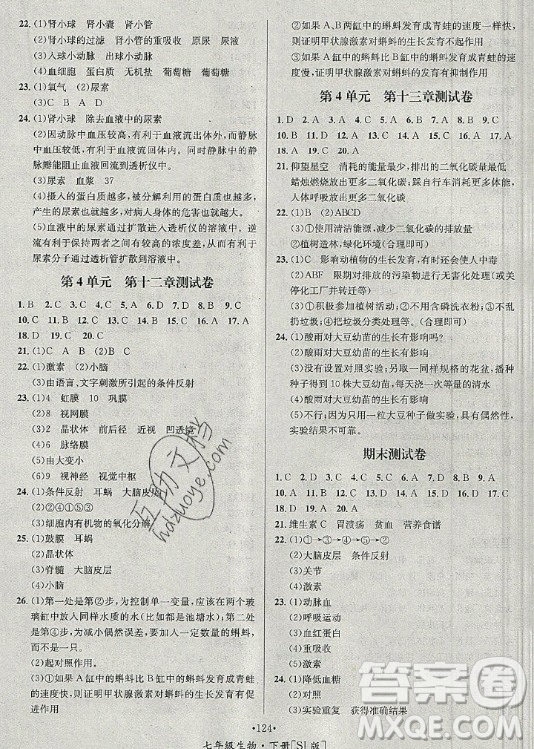 22. (1)肾小球 肾小囊 肾小管
(2)肾小球的过滤 肾小管的重吸收 原尿 尿液
(3)入球小动脉 出球小动脉
(4)血细胞 蛋白质 无机盐 葡萄糖 葡萄糖
23. (1)氧气 (2)尿素
(3)C B A D
24. (1)肾小球 除去血液中的尿素
(2)因动脉中血压较高,有利于血液流出体内,而静脉
中血压较低,有利于血液流回体内。
(3)尿素 血浆 37
(4)摄入的蛋白质越多,被分解利用的蛋白质越多,产
生的尿素越多,对病人身体危害也会越大。
(5)尿素通过扩散进入透析仪的透析溶液中。这种
逆流有利于保持两者之间有较高的浓度差,从而有利于
尿素分子通过透析管扩散到透析溶液中。
第4单元 第十二章测试卷
1. B 2. C 3. D 4. D 5. B 6. D 7. D 8. B 9. C
10. C 11. B 12. D 13. A 14. D 15. C 16. A 17. A
18. D 19. D 20. B
21. (1)C A (2)B (3)B
22. (1)激素 (2)小脑
(3)由语言、文字刺激所引起的条件反射
23. (1)4 虹膜 10 巩膜
(2)8 视网膜
(3)2 晶状体 前后径 近视 凹透镜
(4)6 脉络膜
(5)由大变小
(6)9 视神经 视觉中枢
24. (1)条件反射 耳蜗 大脑皮层
(2)②④①⑤③
(3)细胞内有机物的氧化分解
25. (1)鼓膜 耳蜗
(2)晶状体
(3)脊髓 大脑皮层
(4)小脑
26. (1)第一处是第②步,为控制单一变量,应该在两个玻
璃缸中加入同样水质的水(都加入比如池塘水);第二处
是第④步,为提高实验的准确性,应该用同样大的蝌蚪,
而且数量一样多。
(2)起对照作用。
(3)①如果A缸中的蝌蚪比B缸中的蝌蚪发育成青蛙
的速度快,则证明甲状腺激素对蝌蚪的生长发育有促进
作用
②如果A、B两缸中的蝌蚪发育成青蛙的速度一样快,
则证明甲状腺激素对蝌蚪的生长发育不起作用
③如果A缸中的蝌蚪比B缸中的蝌蚪发育成青蛙的速
度慢,则证明甲状腺激素对蝌蚪的生长发育有抑制作用
第4单元 第十三章测试卷
1. D 2. C 3. D 4. A 5. B 6. C 7. D 8. D 9. C
10. B 11. D 12. A 13. B 14. B 15. C 16. C 17. A
18. D 19. A 20. A
21. 仰望星空 消耗的能量最少,排出的二氧化碳最少。
蜡烛燃烧放出更多二氧化碳,踩自行车时呼吸作用加
强放出更多二氧化碳。
22. (1)② (2)ABCD
(3)使用清洁能源,减少二氧化碳的排放量
④植树造林,绿化环境(合理即可)
23. (1)影响动植物的生长,可能会使人中毒
(2)ABF 限期对排放的污染物进行无害化处理(或关
停化工厂并进行迁移)
(3)①积极参加植树活动;②不使用含磷洗衣粉;
③把垃圾分类处理等。(合理即可)
24. (1)酸雨对大豆幼苗的生长有影响吗?
(2)酸雨对大豆幼苗的生长有影响
(3)②为对照实验,另取一同样规格的花盆,播同样
种子同样培育10株大豆幼苗,每天喷洒等量的清水
(4)酸雨对大豆幼苗的生长有影响
(5)不可以,只用一粒大豆种子实验,具有偶然性,
实验结果不具有代表性。
期末测试卷
1. C 2. D 3. D 4. B 5. A 6. C 7. B 8. C 9. D
10. A 11. C 12. A 13. A 14. C 15. B 16. C 17. D
18. A 19. C 20. A
21. 维生素C 胃溃疡 贫血 营养食谱
22. (1)②→①→③→④→⑤
(2)大脑皮层 条件反射
(3)关节
(4)激素
23. (1)动脉血
(2)呼吸作用
(3)血红蛋白
(4)④
(5)激素
24. (1)降低血糖
(4)重复实验 获得准确结果
·124·
七年级生物·下册[SJ版]
互助文档
hdzuoye.com